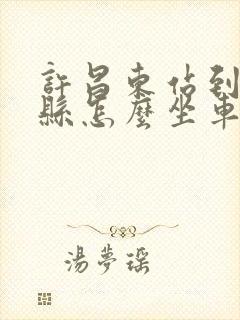 許昌東佔到
縣怎麼坐車
湯夢瑶